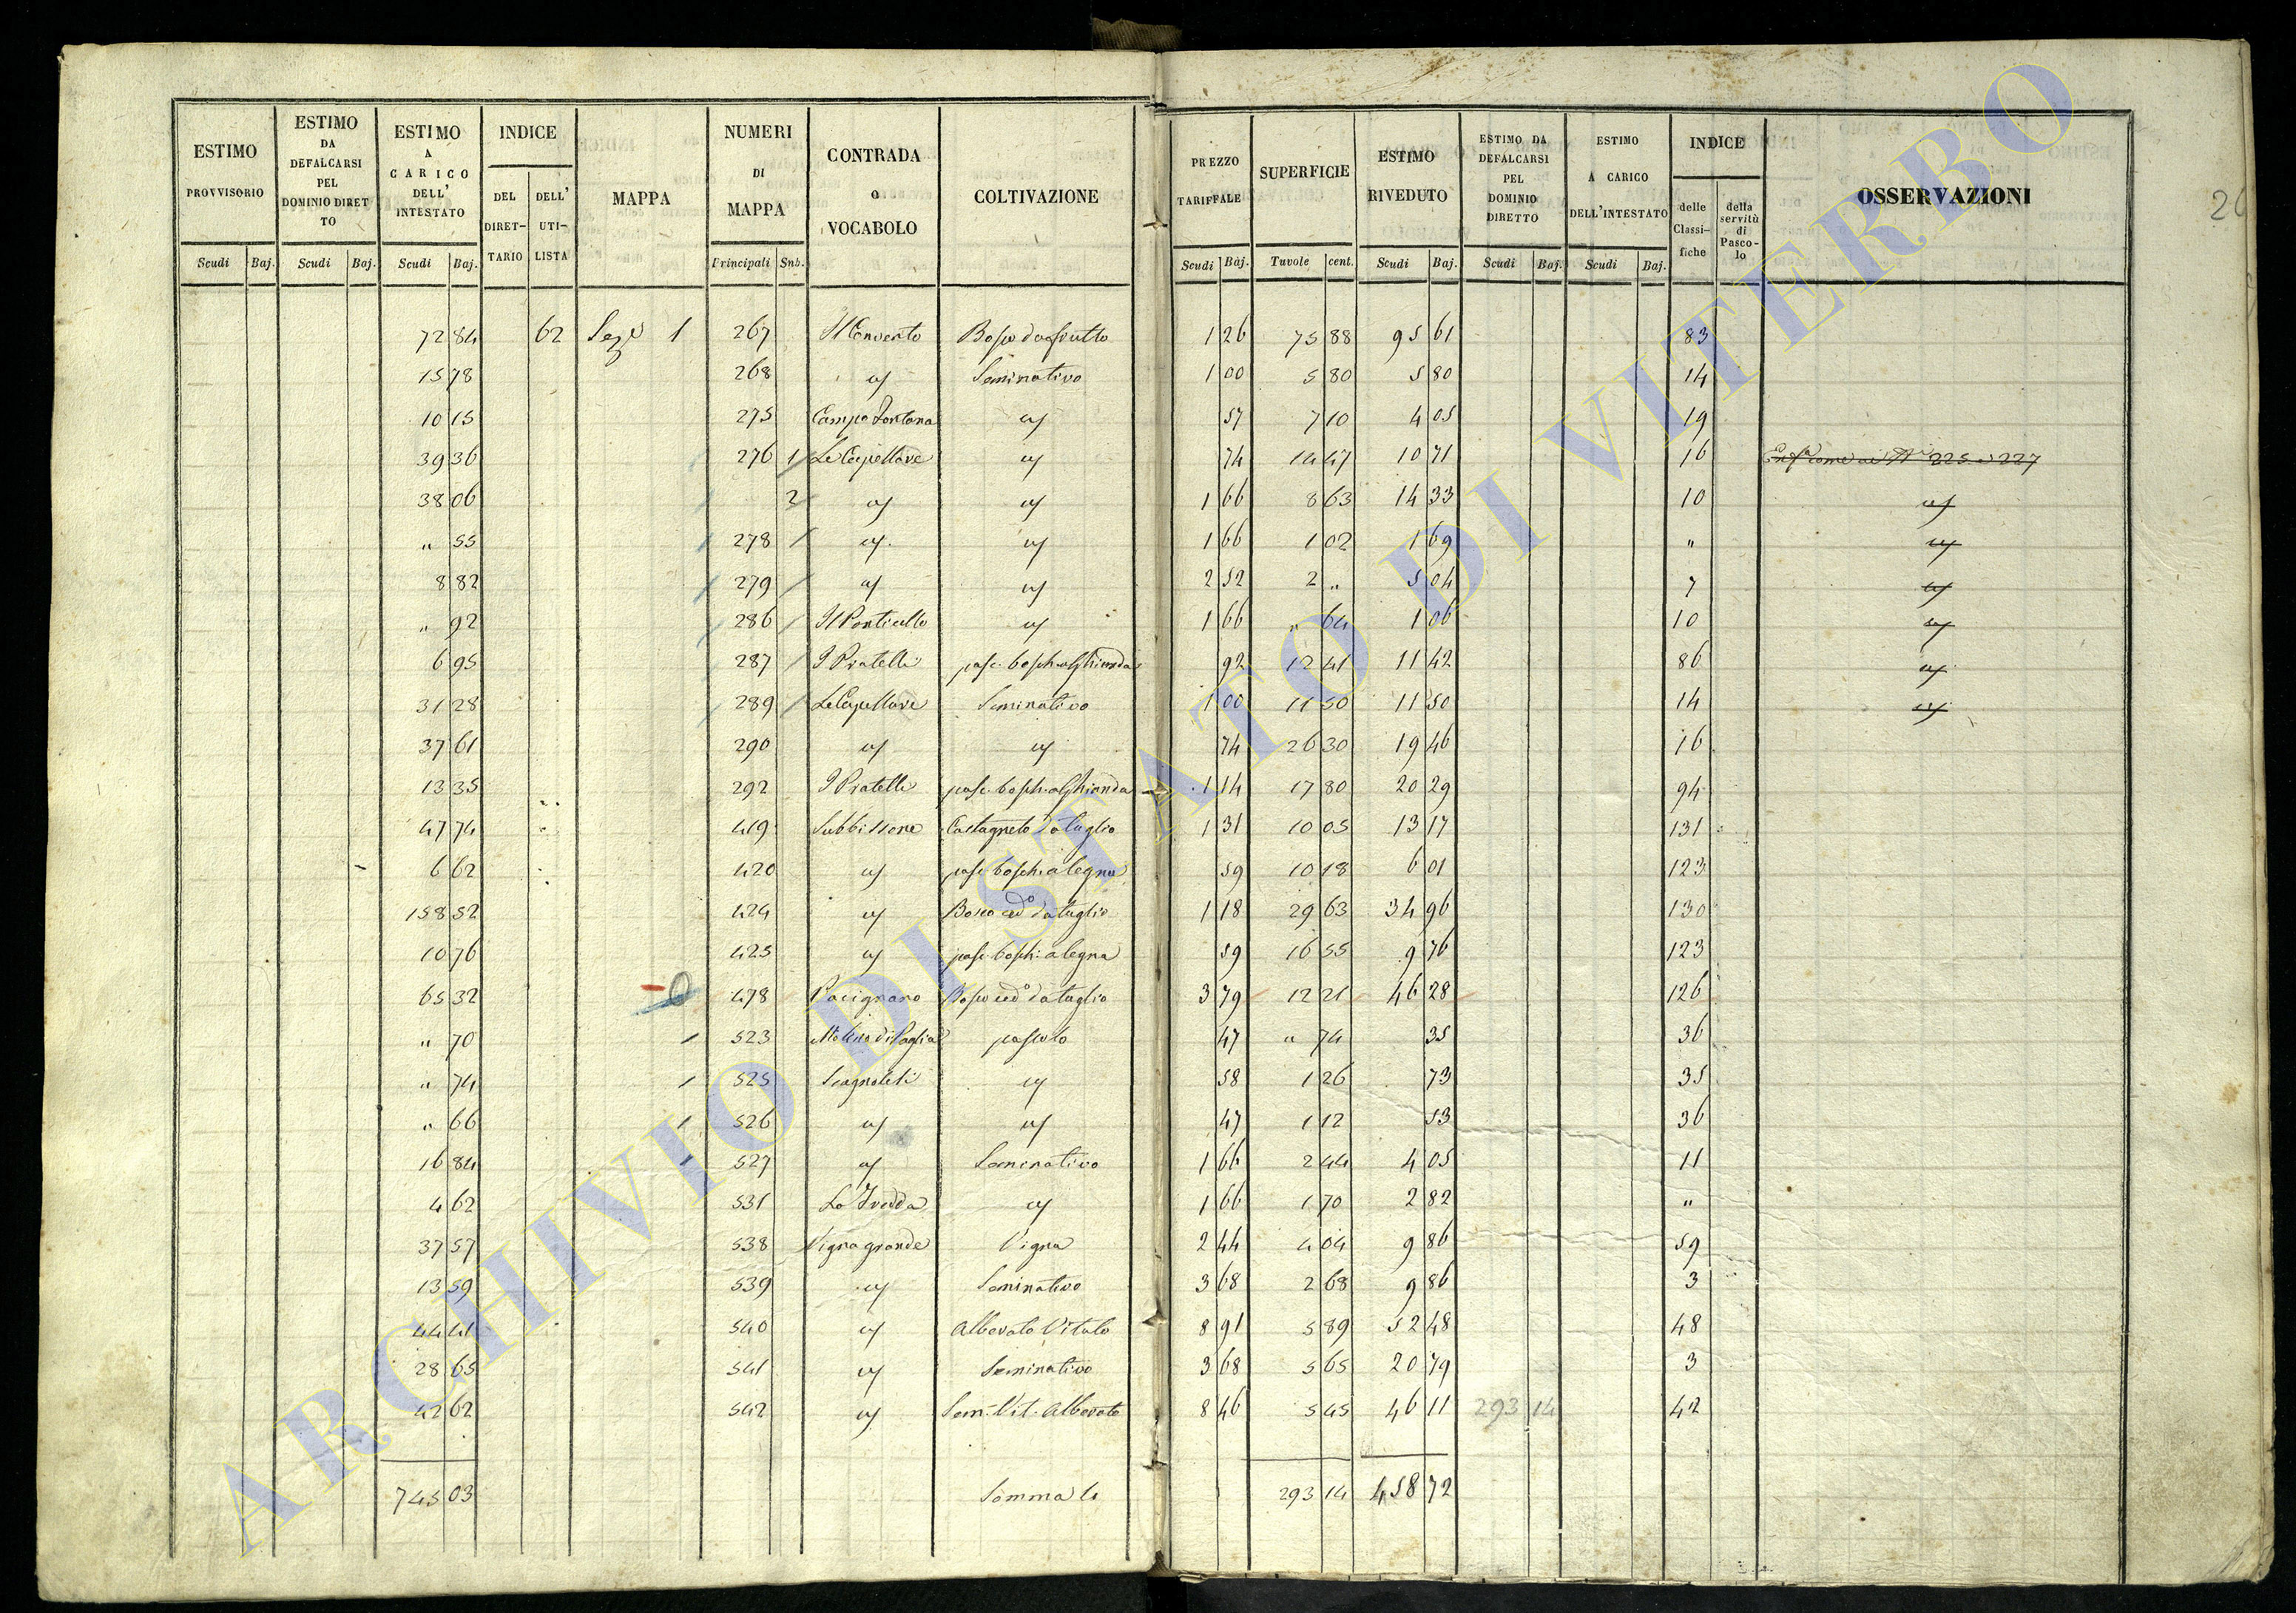 ESTIMO PROVVISORIO | ESTIMO DA DEFALCARSI PEL DOMINIO DIRETTO | ESTIMO A CARICO DELL' INTESTATO | INDICE | MAPPA | NUMERI DI MAPPA | CONTRADA o VOCABOLO | COLTIVAZIONE | PREZZO TARIFFALE | SUPERFICIE | ESTIMO RIVEDUTO | ESTIMO DA DEFALCARSI PEL DOMINIO DIRETTO | ESTIMO A CARICO DELL'INTESTATO | INDICE | OSSERVAZIONI
DEL DIRETTARIO | DELL' UTILISTA | delle Classifiche | della servitù di Pascolo
Scudi | Baj. | Scudi | Baj. | Scudi | Baj. | Principali | Sub. | Scudi | Baj. | Tavole | cent. | Scudi | Baj. | Scudi | Baj. | Scudi | Baj.
26
72 84 | 62 | Sezе 1 | 267 | Il Convento | Bosco da frutto | 1 26 | 75 88 | 95 61 | 83
15 78 | 268 | ę | Seminativo | 1 00 | 5 80 | 5 80 | 14
10 15 | 275 | Campo Fontana | ę | 57 | 7 10 | 4 05 | 19
39 36 | 276 | 1 | Le Capellare | ę | 74 | 14 47 | 10 71 | 16 | come ai Ni 225 227
38 06 | 2 | ę | ę | 1 66 | 8 63 | 14 33 | 10 | ę
" 55 | 278 | ę | ę | 1 66 | 1 02 | 1 69 | " | ę
8 82 | 279 | ę | ę | 2 52 | 2 " | 5 04 | 7 | ę
" 92 | 286 | Il Ponticello | ę | 1 66 | " 64 | 1 06 | 10 | ę
6 95 | 287 | I Pratelli | pasc. bosch. a Ghianda | 92 | 12 41 | 11 42 | 86 | ę
31 28 | 289 | Le Capellare | Seminativo | 1 00 | 11 50 | 11 50 | 14 | ę
37 61 | 290 | ę | ę | 74 | 26 30 | 19 46 | 16
13 35 | 292 | I Pratelli | pasc. bosch. a Ghianda | 1 14 | 17 80 | 20 29 | 94
47 74 | 419 | Subbissone | Castagneto da taglio | 1 31 | 10 05 | 13 17 | 131
6 62 | 420 | ę | pasc. bosch. a legna | 59 | 10 18 | 6 01 | 123
158 52 | 424 | ę | Bosco cedo da taglio | 1 18 | 29 63 | 34 96 | 130
10 76 | 425 | ę | pasc. bosch. a legna | 59 | 16 55 | 9 76 | 123
65 32 | 478 | Pacignano | Bosco cedo da taglio | 3 79 | 12 21 | 46 28 | 126
" 70 | 523 | pascolo | 47 | " 74 | 35 | 36
" 74 | 525 | Scagnoleti | ę | 58 | 1 26 | 73 | 35
" 66 | 526 | ę | ę | 47 | 1 12 | 53 | 36
16 84 | 527 | ę | Seminativo | 1 66 | 2 44 | 4 05 | 11
4 62 | 531 | ę | 1 66 | 1 70 | 2 82 | "
37 57 | 538 | Vigna grande | Vigna | 2 44 | 4 04 | 9 86 | 59
13 59 | 539 | ę | Seminativo | 3 68 | 2 68 | 9 86 | 3
44 41 | 540 | ę | Alberato Vitato | 8 91 | 5 89 | 52 48 | 48
28 65 | 541 | ę | Seminativo | 3 68 | 5 65 | 20 79 | 3
42 62 | 542 | ę | Sem. Vit. Alberato | 8 46 | 5 45 | 46 11 | 293 14 | 42
745 03 | Somma | 293 14 | 458 72
ARCHIVIO DI STATO DI VITERBO